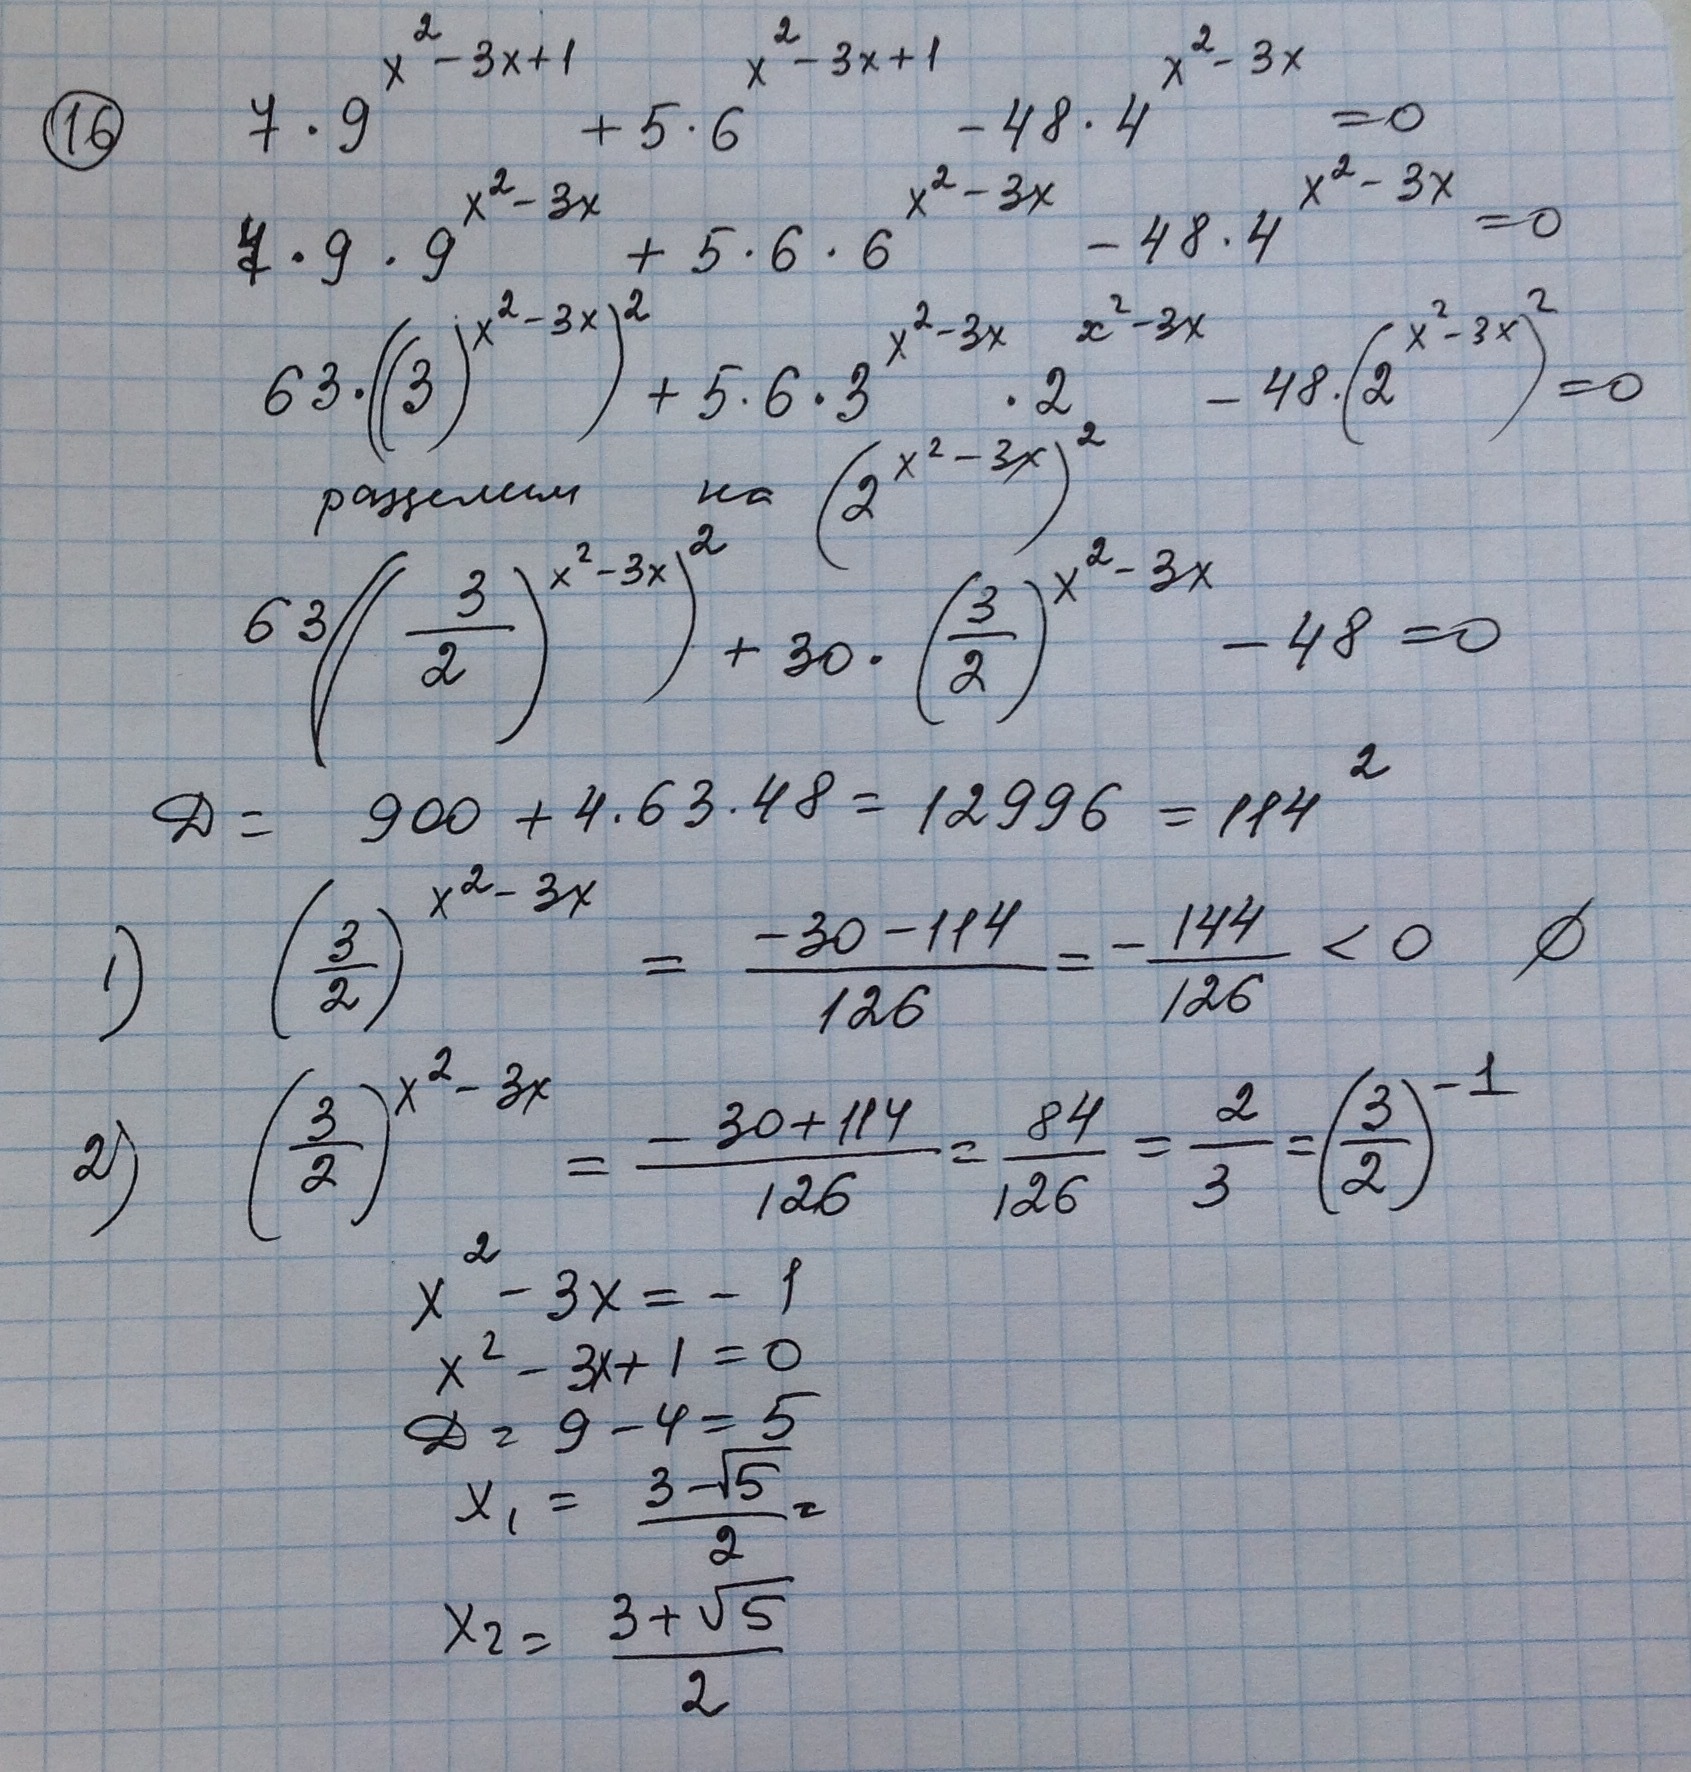 (16) 7 · 9^(x²-3x+1) + 5 · 6^(x²-3x+1) - 48 · 4^(x²-3x) = 0
7 · 9 · 9^(x²-3x) + 5 · 6 · 6^(x²-3x) - 48 · 4^(x²-3x) = 0
63 · ((3)^(x²-3x))² + 5 · 6 · 3^(x²-3x) · 2^(x²-3x) - 48 · (2^(x²-3x))² = 0
разделим на (2^(x²-3x))²
63 ((3/2)^(x²-3x))² + 30 · (3/2)^(x²-3x) - 48 = 0
D = 900 + 4 · 63 · 48 = 12996 = 114²
1) (3/2)^(x²-3x) = (-30-114)/126 = -144/126 < 0 ∅
2) (3/2)^(x²-3x) = (-30+114)/126 = 84/126 = 2/3 = (3/2)^(-1)
x² - 3x = -1
x² - 3x + 1 = 0
D = 9 - 4 = 5
x₁ = (3-√5)/2 =
x₂ = (3+√5)/2